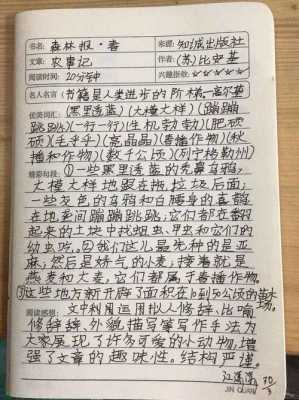 书名：森林报·春 来源：知识出版社
文章：农事记 作者：(苏)比安基
阅读时间：20分钟 兴趣指数：☆☆☆☆☆
名人名言：(书籍是人类进步的阶梯—高尔基
优美词汇：(黑里透蓝)(大模大样)(蹦蹦
跳跳)(一行一行)(生机勃勃)(肥硕
硕)(毛乎乎)(亮晶晶)(春播作物)(秋
播和作物)(数千公顷)(列宁格勒州)
精彩句段：①一些黑里透蓝的秃鼻乌鸦，
大模大样地跟在拖拉圾后面，
一些灰色的乌鸦和白腰身的喜鹊
在地垄间蹦蹦跳跳，它们都在翻
起来的土块中找蛆虫、甲虫和它们的
幼虫吃。②我们这儿最先种的是亚
麻，然后是娇气的小麦，接着就是
燕麦和大麦，它们都属于春播作物。
③这些地方新开辟了面积在10到50公顷的苗木
场。
阅读感想：文中利用运用拟人修辞、比喻
修辞辞、外貌描写等写作手法为
大家展现了许多可爱的小动物，增
强了文章的趣味性。结构严谨。
JIN QUAN